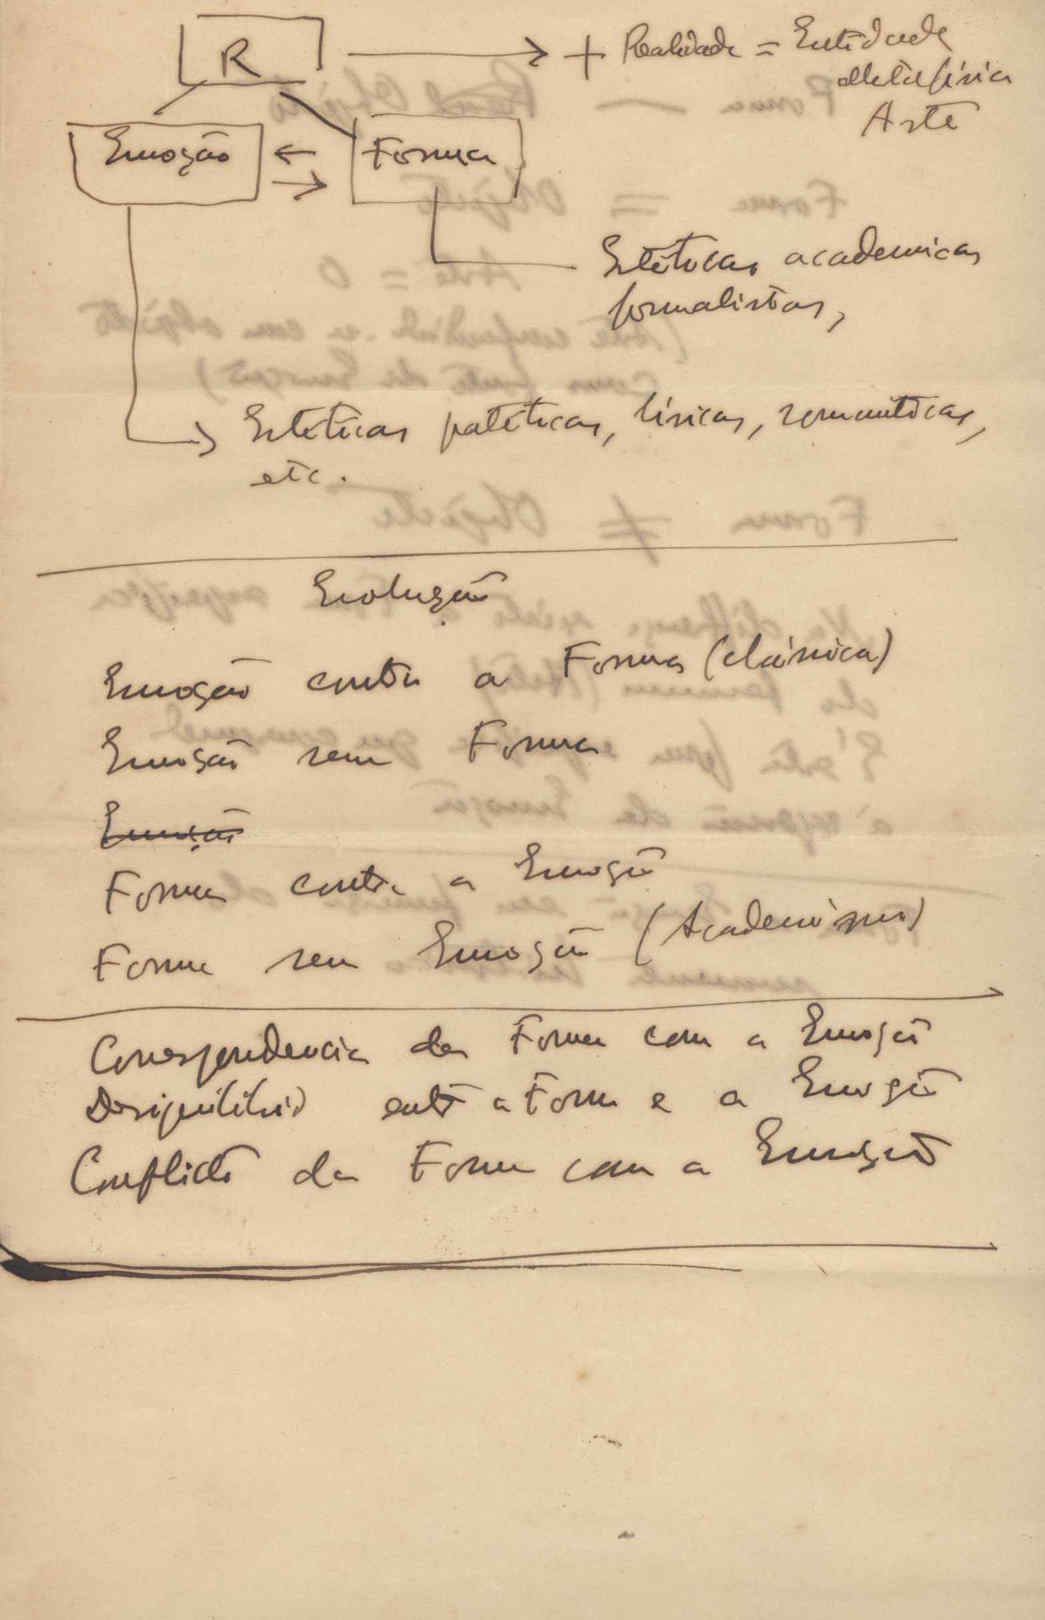 R → + Realidade = Entidade
Metafísica
Arte
Emoção ← → Forma
Estéticas academicas
formalistas,
Estéticas patéticas, líricas, romanticas,
etc.
Evolução
Emoção contra a Forma (clássica)
Emoção sem Forma
Emoção
Forma contra a Emoção
Forma sem Emoção (Academismo)
Correspondencia da Forma com a Emoção
Desiquilibrio entre a Forma e a Emoção
Conflicto da Forma com a Emoção